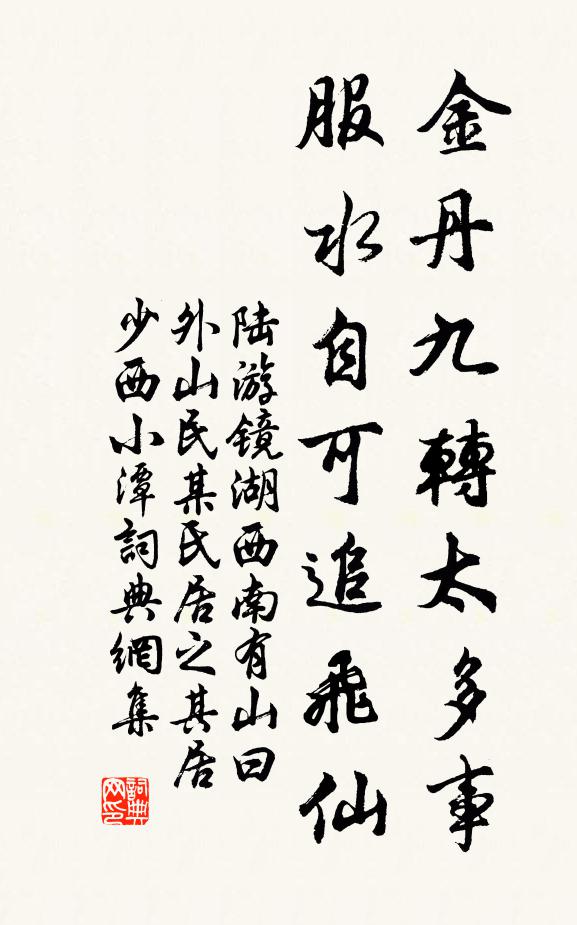 金丹九轉太多事
服水自可追飛仙
陆游鏡湖西南有山曰
外山民某氏居之其居
少西小潭詞典網集
詞典网印